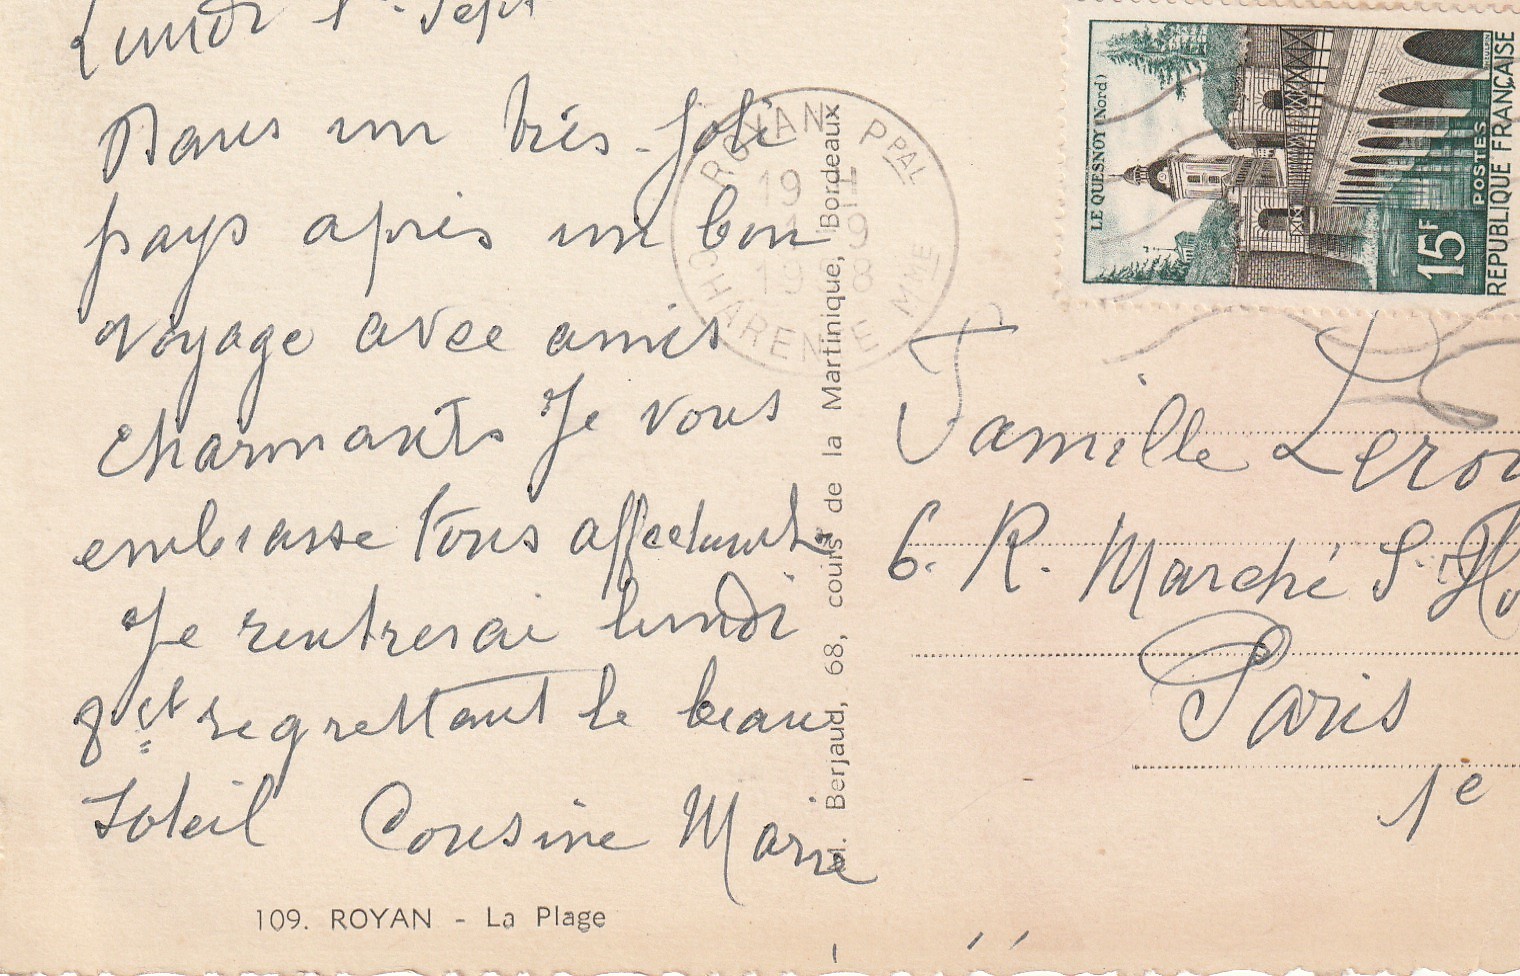 Lundi 1er Sept
Dans un très joli
pays après un bon
voyage avec amis
charmants Je vous
embrasse tous
Je rentrerai lundi
8 et regrettant le beau
Soleil Cousine Marie
109. ROYAN - La Plage
Berjaud, 68, cours de la Martinique, Bordeaux
ROYAN PPAL
19 H
1 9
1958
CHARENTE MME
LE QUESNOY (Nord)
15F
POSTES
RÉPUBLIQUE FRANÇAISE
Famille Lerou
6. R. Marché St. Ho
Paris
1e